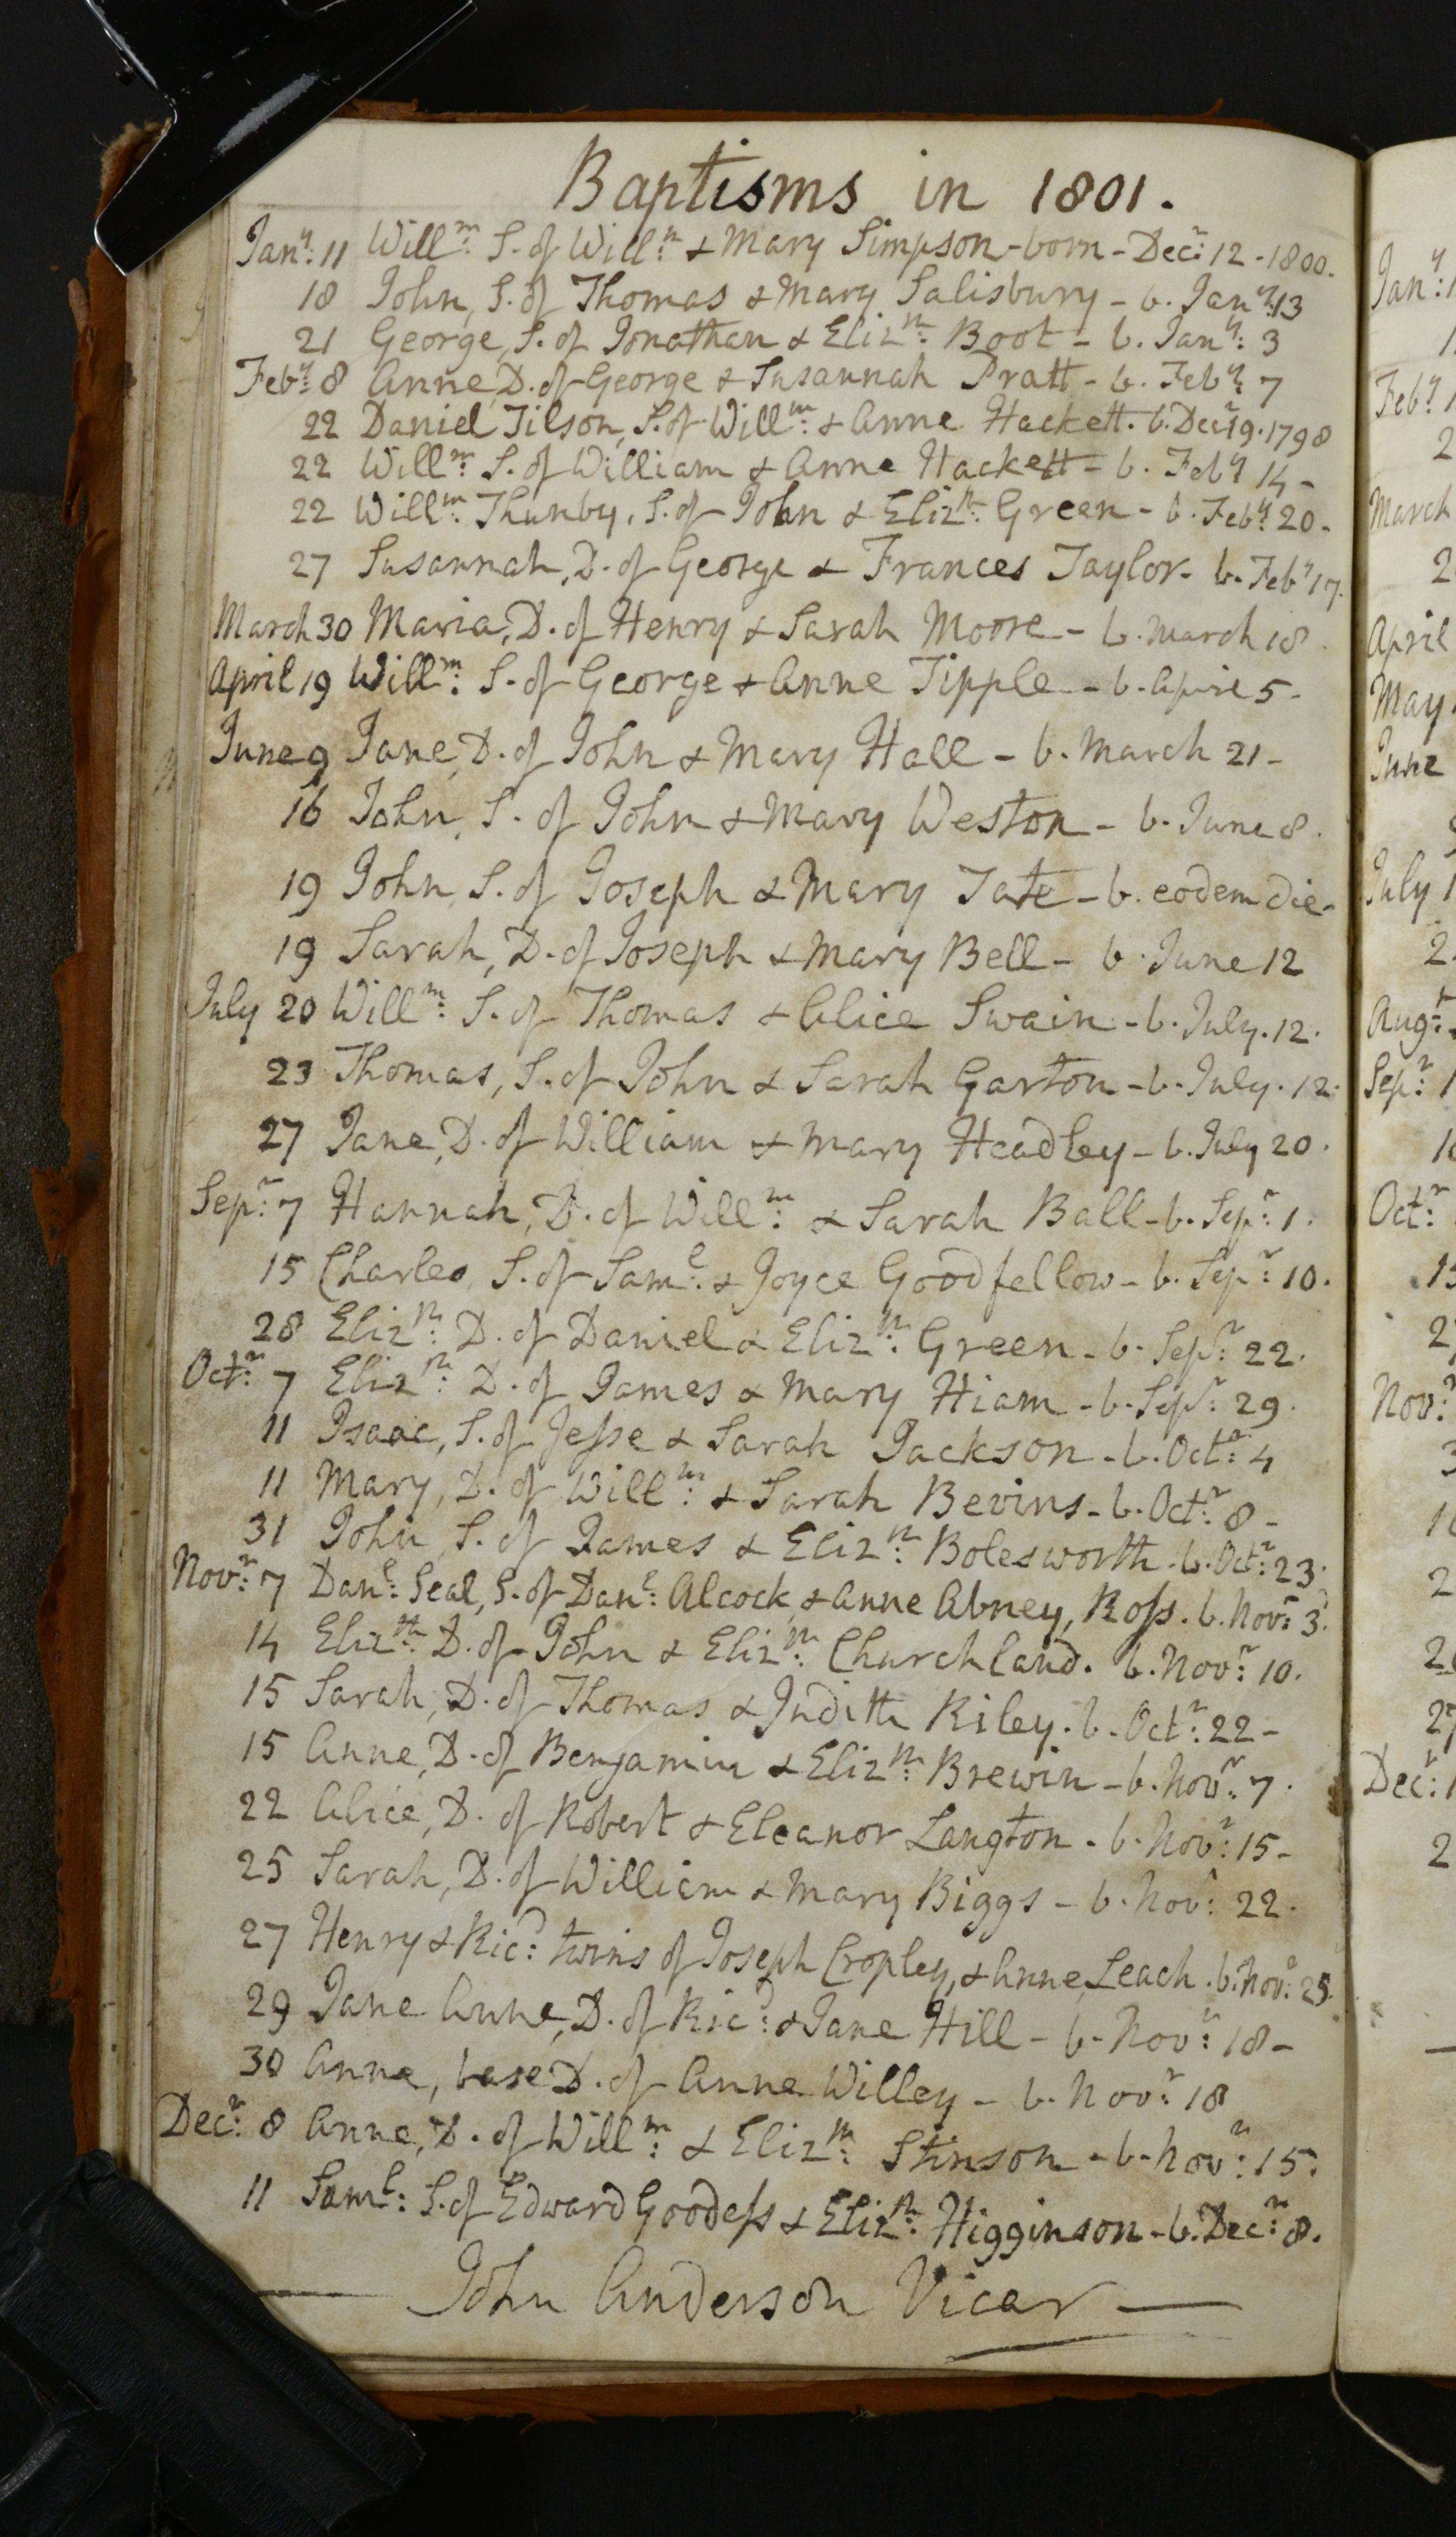 Baptisms in 1801.
Jan.y 11 Will.m S. of Will.m & Mary Simpson - born - Dec.r 12 - 1800.
18 John, S. of Thomas & Mary Salisbury - b. Jan.y 13
21 George, S. of Jonathan & Eliz.th Boot - b. Jan.y 3
Feb.y 8 Anne, D. of George & Susannah Pratt - b. Feb.y 7
22 Daniel Tilson, S. of Will.m & Anne Hackett. b. Dec.r 19. 1798
22 Will.m S. of William & Anne Hackett - b. Feb.y 14 -
22 Will.m Thunby, S. of John & Eliz.th Green - b. Feb.y 20 -
27 Susannah, D. of George & Frances Taylor - b. Feb.y 17.
March 30 Maria, D. of Henry & Sarah Moore - b. March 18.
April 19 Will.m S. of George & Anne Tipple - b. April 5 -
June 9 Jane, D. of John & Mary Hall - b. March 21 -
16 John, S. of John & Mary Weston - b. June 8.
19 John, S. of Joseph & Mary Tate - b. eodem die -
19 Sarah, D. of Joseph & Mary Bell - b. June 12
July 20 Will.m S. of Thomas & Alice Swain - b. July. 12.
23 Thomas, S. of John & Sarah Garton - b. July. 12.
27 Jane, D. of William & Mary Headley - b. July 20.
Sep.r 7 Hannah, D. of Will.m & Sarah Ball - b. Sep.r 1.
15 Charles, S. of Sam.l & Joyce Goodfellow - b. Sep.r 10.
28 Eliz.th D. of Daniel & Eliz.th Green - b. Sep.r 22.
Oct.r 7 Eliz.th D. of James & Mary Hiam - b. Sep.r 29.
11 Isaac, S. of Jesse & Sarah Jackson - b. Oct.r 4
11 Mary, D. of Will.m & Sarah Bevins - b. Oct.r 8 -
31 John, S. of James & Eliz.th Bolesworth. b. Oct.r 23.
Nov.r 7 Dan.l Seal, S. of Dan.l Alcock, & Anne Abney, Ross. b. Nov.r 3.
14 Eliz.th D. of John & Eliz.th Churchland. b. Nov.r 10.
15 Sarah, D. of Thomas & Judith Riley. b. Oct.r 22 -
15 Anne, D. of Benjamin & Eliz.th Brewin - b. Nov.r 7.
22 Alice, D. of Robert & Eleanor Langton - b. Nov.r 15 -
25 Sarah, D. of William & Mary Biggs - b. Nov.r 22.
27 Henry & Ric.d twins of Joseph Cropley, & Anne Leach. b. Nov.r 25.
29 Jane Anne, D. of Ric.d & Jane Hill - b. Nov.r 18 -
30 Anne, base D. of Anne Willey - b. Nov.r 18
Dec.r 8 Anne, D. of Will.m & Eliz.th Stinson - b. Nov.r 15.
11 Sam.l S. of Edward Goodess & Eliz.th Higginson - b. Dec.r 8.
John Anderson Vicar
Jan.y
Feb.y
March
April
May
June
July
Aug.t
Sep.r
Oct.r
Nov.r
Dec.r